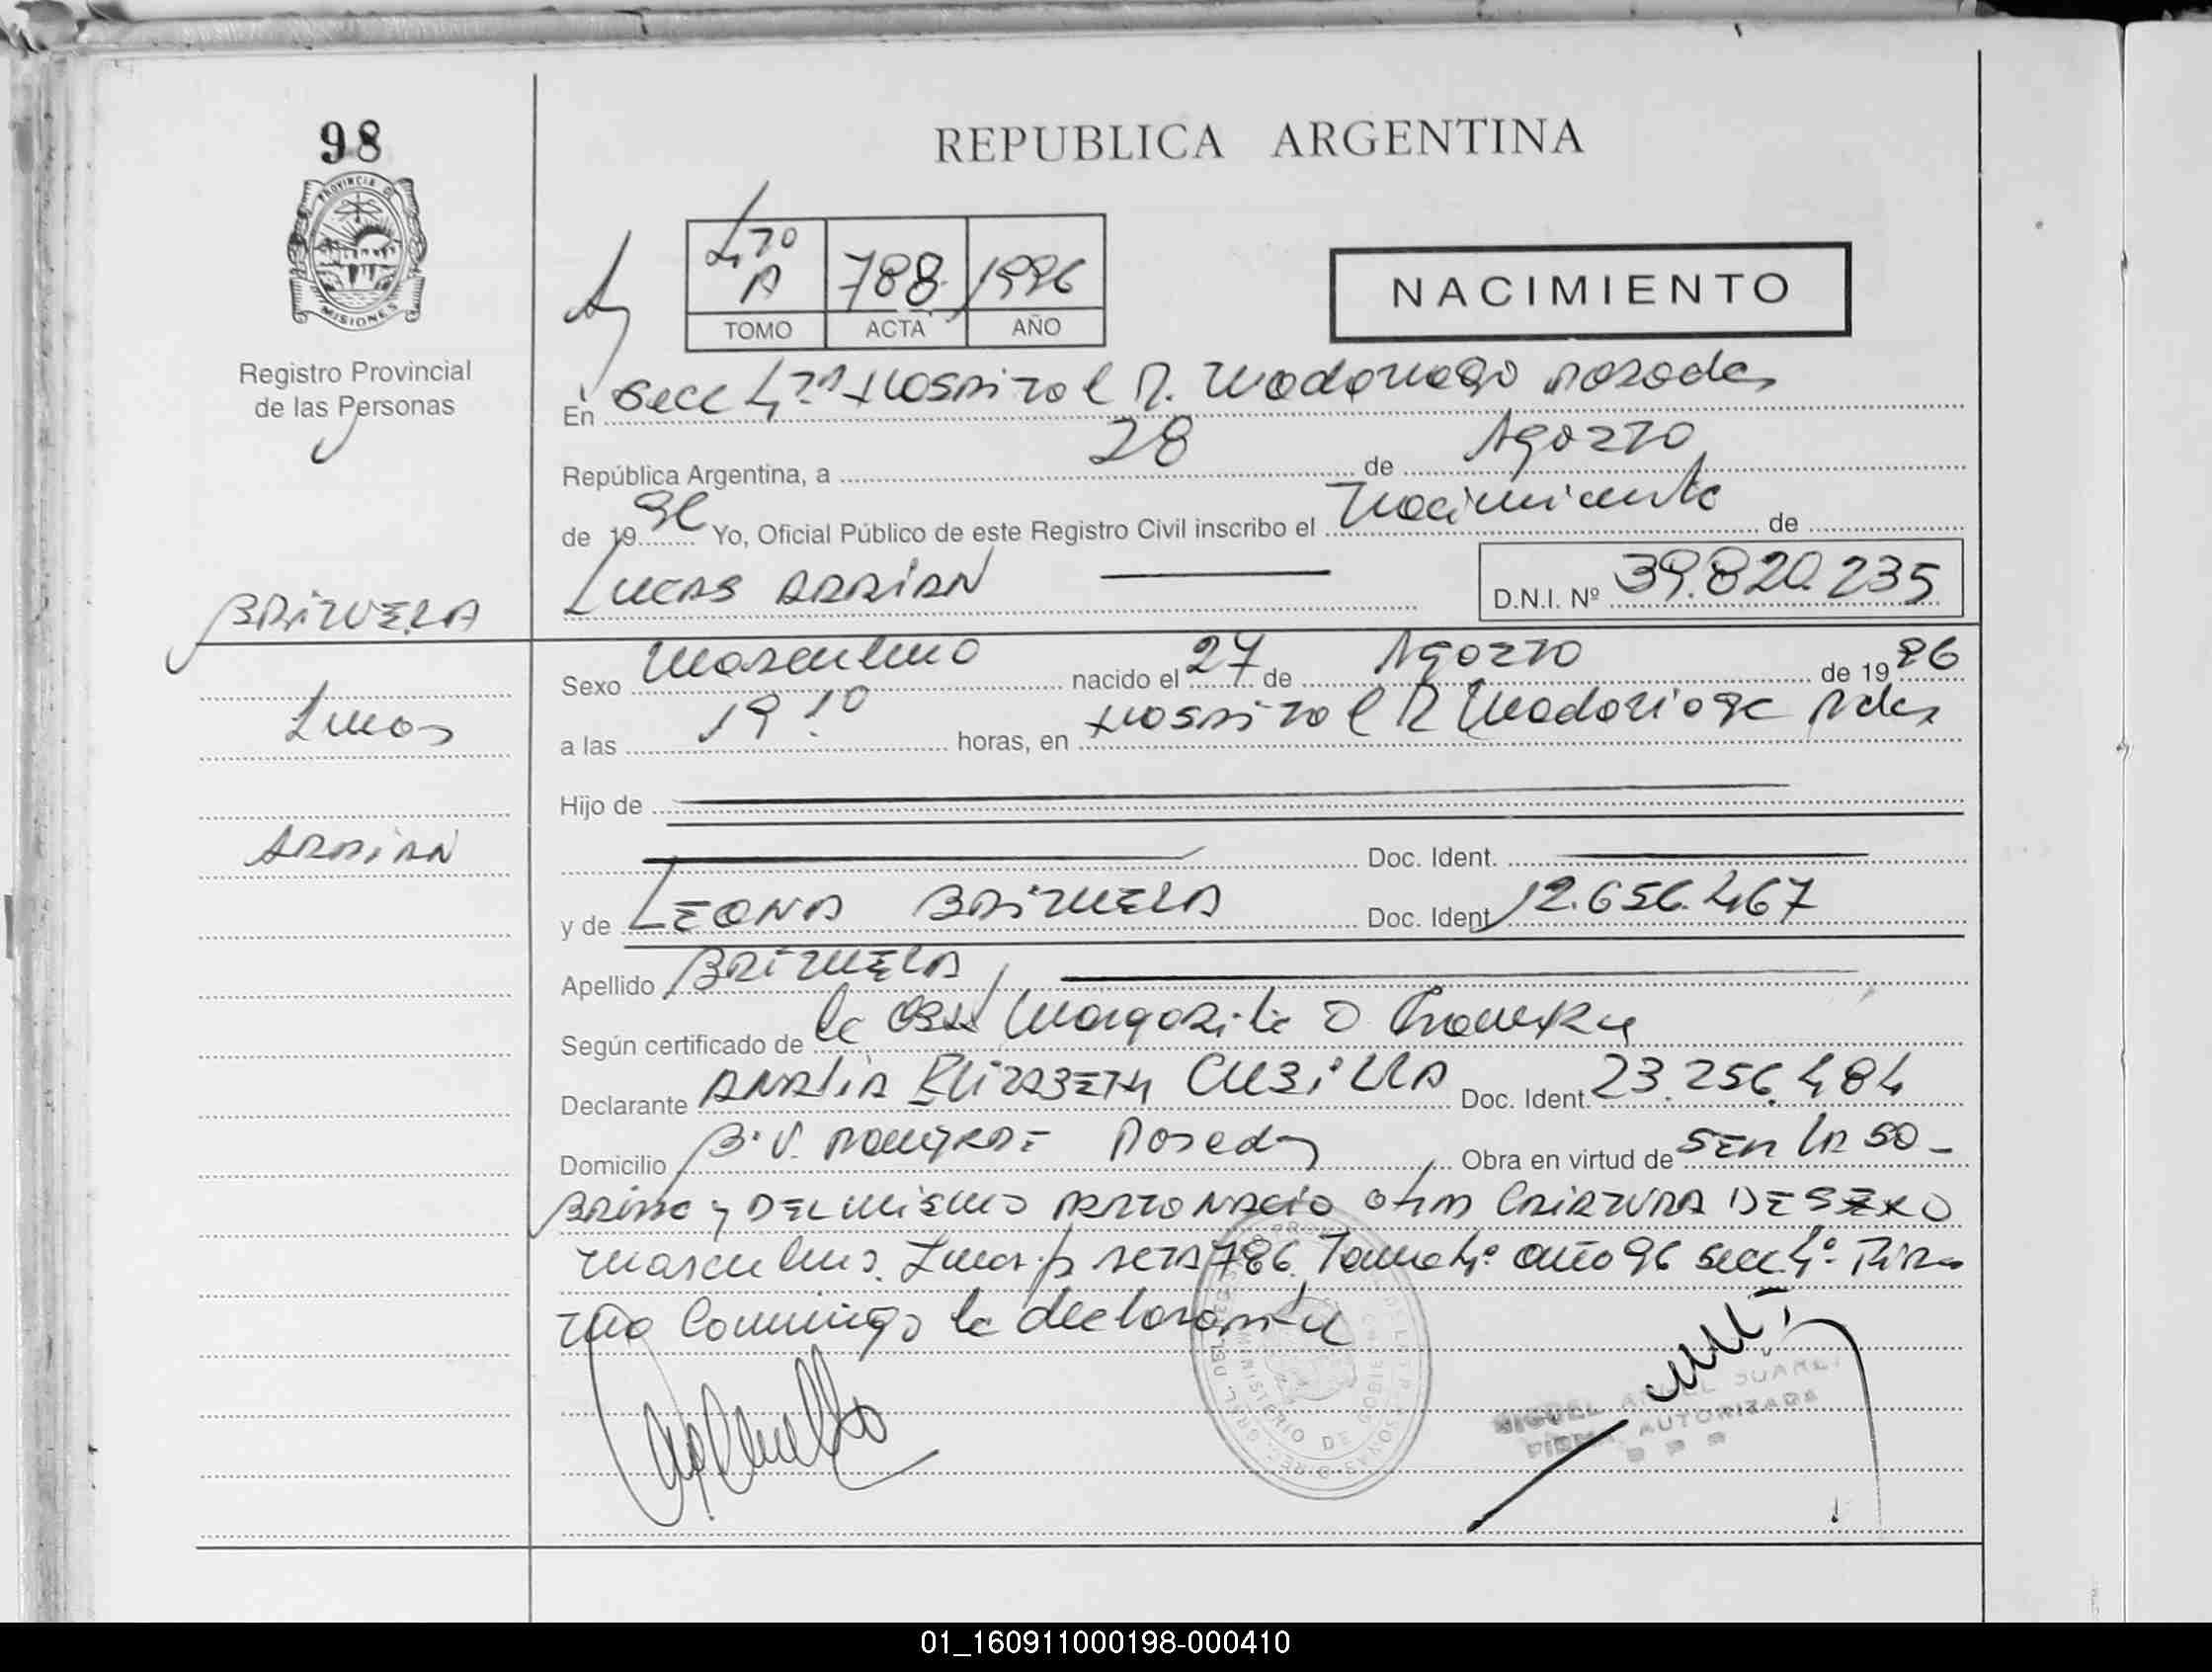 98
REPUBLICA ARGENTINA
PROVINCIA D
MISIONES
Registro Provincial
de las Personas
4to A 788 1996
TOMO ACTA AÑO
NACIMIENTO
En Secc 4ta Hospital R. Madariaga Posadas
República Argentina, a 28 de Agosto
de 1996 Yo, Oficial Público de este Registro Civil inscribo el Nacimiento de
LUCAS ADRIAN
D.N.I. Nº 39.820.235
BRIZUELA
Lucas
ADRIAN
Sexo Masculino nacido el 27 de Agosto de 1996
a las 19.10 horas, en Hospital R Madariaga Pdas
Hijo de
Doc. Ident.
y de LEONA BRIZUELA Doc. Ident 12.656.467
Apellido BRIZUELA
Según certificado de la Obst Margarita
Declarante ANALIA ELIZABETH CUBILLA Doc. Ident. 23.256.484
Domicilio B. V. Posadas Obra en virtud de SER LA SO-
BRINA y DEL MISMO PARTO NACIO OTRA CRIATURA DE SEXO
masculino. Insc. p ACTA 786. Tomo 4º año 96 secc. 4º. Fir
conmigo la declarante
MINISTERIO DE GOBIE
MIGUEL ANGEL SUAREZ
FIRMA AUTORIZADA
01_160911000198-000410